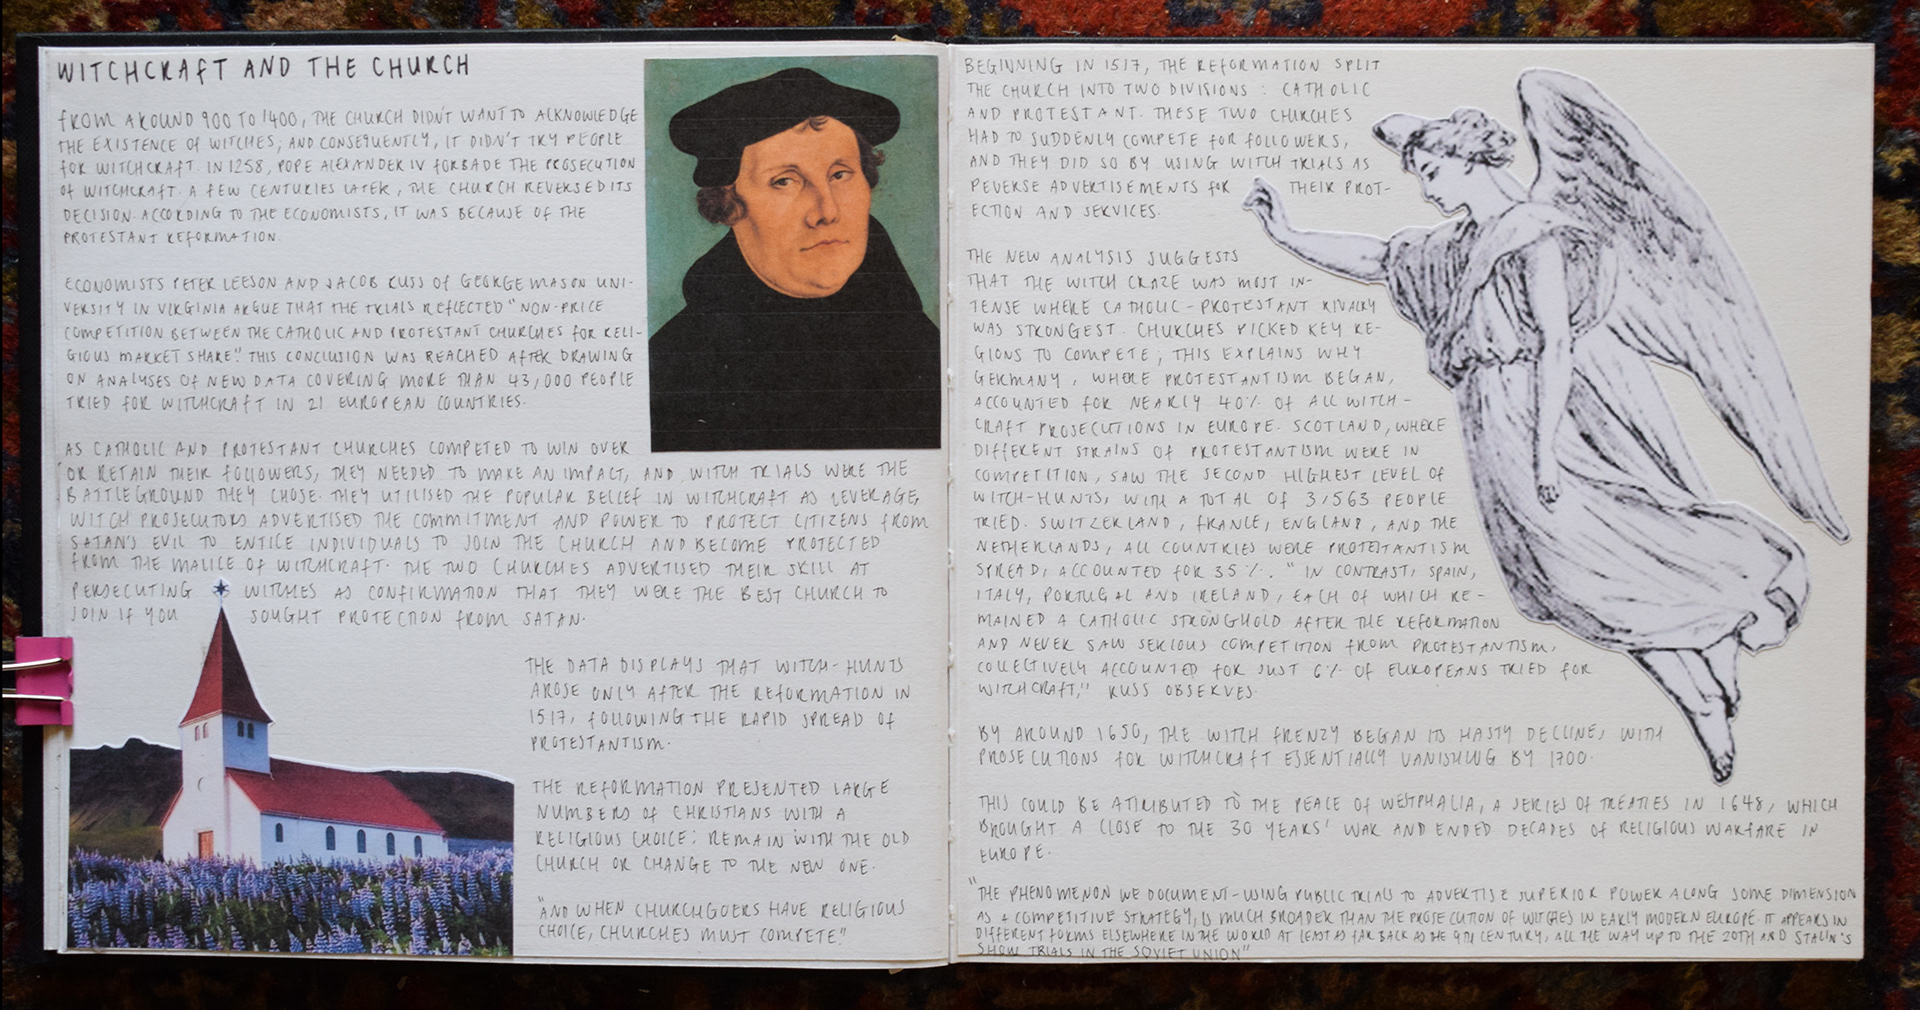 WITCHCRAFT AND THE CHURCH
FROM AROUND 900 TO 1400, THE CHURCH DIDN'T WANT TO ACKNOWLEDGE
THE EXISTENCE OF WITCHES, AND CONSEQUENTLY, IT DIDN'T TRY PEOPLE
FOR WITCHCRAFT. IN 1258, POPE ALEXANDER IV FORBADE THE PROSECUTION
OF WITCHCRAFT. A FEW CENTURIES LATER, THE CHURCH REVERSED ITS
DECISION. ACCORDING TO THE ECONOMISTS, IT WAS BECAUSE OF THE
PROTESTANT REFORMATION.
ECONOMISTS PETER LEESON AND JACOB RUSS OF GEORGE MASON UNI-
VERSITY IN VIRGINIA ARGUE THAT THE TRIALS REFLECTED "NON-PRICE
COMPETITION BETWEEN THE CATHOLIC AND PROTESTANT CHURCHES FOR RELI-
GIOUS MARKET SHARE". THIS CONCLUSION WAS REACHED AFTER DRAWING
ON ANALYSES OF NEW DATA COVERING MORE THAN 43,000 PEOPLE
TRIED FOR WITCHCRAFT IN 21 EUROPEAN COUNTRIES.
AS CATHOLIC AND PROTESTANT CHURCHES COMPETED TO WIN OVER
OR RETAIN THEIR FOLLOWERS, THEY NEEDED TO MAKE AN IMPACT, AND WITCH TRIALS WERE THE
BATTLEGROUND THEY CHOSE. THEY UTILISED THE POPULAR BELIEF IN WITCHCRAFT AS LEVERAGE,
WITCH PROSECUTORS ADVERTISED THE COMMITMENT AND POWER TO PROTECT CITIZENS FROM
SATAN'S EVIL TO ENTICE INDIVIDUALS TO JOIN THE CHURCH AND BECOME PROTECTED
FROM THE MALICE OF WITCHCRAFT. THE TWO CHURCHES ADVERTISED THEIR SKILL AT
PERSECUTING WITCHES AS CONFIRMATION THAT THEY WERE THE BEST CHURCH TO
JOIN IF YOU SOUGHT PROTECTION FROM SATAN.
THE DATA DISPLAYS THAT WITCH-HUNTS
AROSE ONLY AFTER THE REFORMATION IN
1517, FOLLOWING THE RAPID SPREAD OF
PROTESTANTISM.
THE REFORMATION PRESENTED LARGE
NUMBERS OF CHRISTIANS WITH A
RELIGIOUS CHOICE: REMAIN WITH THE OLD
CHURCH OR CHANGE TO THE NEW ONE.
"AND WHEN CHURCHGOERS HAVE RELIGIOUS
CHOICE, CHURCHES MUST COMPETE."
BEGINNING IN 1517, THE REFORMATION SPLIT
THE CHURCH INTO TWO DIVISIONS: CATHOLIC
AND PROTESTANT. THESE TWO CHURCHES
HAD TO SUDDENLY COMPETE FOR FOLLOWERS,
AND THEY DID SO BY USING WITCH TRIALS AS
PEVERSE ADVERTISEMENTS FOR THEIR PROT-
ECTION AND SERVICES.
THE NEW ANALYSIS SUGGESTS
THAT THE WITCH CRAZE WAS MOST IN-
TENSE WHERE CATHOLIC-PROTESTANT RIVALRY
WAS STRONGEST. CHURCHES PICKED KEY RE-
GIONS TO COMPETE; THIS EXPLAINS WHY
GERMANY, WHERE PROTESTANTISM BEGAN,
ACCOUNTED FOR NEARLY 40% OF ALL WITCH-
CRAFT PROSECUTIONS IN EUROPE. SCOTLAND, WHERE
DIFFERENT STRAINS OF PROTESTANTISM WERE IN
COMPETITION, SAW THE SECOND HIGHEST LEVEL OF
WITCH-HUNTS, WITH A TOTAL OF 3,563 PEOPLE
TRIED. SWITZERLAND, FRANCE, ENGLAND, AND THE
NETHERLANDS, ALL COUNTRIES WERE PROTESTANTISM
SPREAD, ACCOUNTED FOR 35%. "IN CONTRAST, SPAIN,
ITALY, PORTUGAL AND IRELAND, EACH OF WHICH RE-
MAINED A CATHOLIC STRONGHOLD AFTER THE REFORMATION
AND NEVER SAW SERIOUS COMPETITION FROM PROTESTANTISM,
COLLECTIVELY ACCOUNTED FOR JUST 6% OF EUROPEANS TRIED FOR
WITCHCRAFT," RUSS OBSERVES.
BY AROUND 1650, THE WITCH FRENZY BEGAN ITS HASTY DECLINE, WITH
PROSECUTIONS FOR WITCHCRAFT ESSENTIALLY VANISHING BY 1700.
THIS COULD BE ATTRIBUTED TO THE PEACE OF WESTPHALIA, A SERIES OF TREATIES IN 1648, WHICH
BROUGHT A CLOSE TO THE 30 YEARS' WAR AND ENDED DECADES OF RELIGIOUS WARFARE IN
EUROPE.
"THE PHENOMENON WE DOCUMENT - USING PUBLIC TRIALS TO ADVERTISE SUPERIOR POWER ALONG SOME DIMENSION
AS A COMPETITIVE STRATEGY, IS MUCH BROADER THAN THE PROSECUTION OF WITCHES IN EARLY MODERN EUROPE. IT APPEARS IN
DIFFERENT FORMS ELSEWHERE IN THE WORLD AT LEAST AS FAR BACK AS THE 9TH CENTURY, ALL THE WAY UP TO THE 20TH AND STALIN'S
SHOW TRIALS IN THE SOVIET UNION"